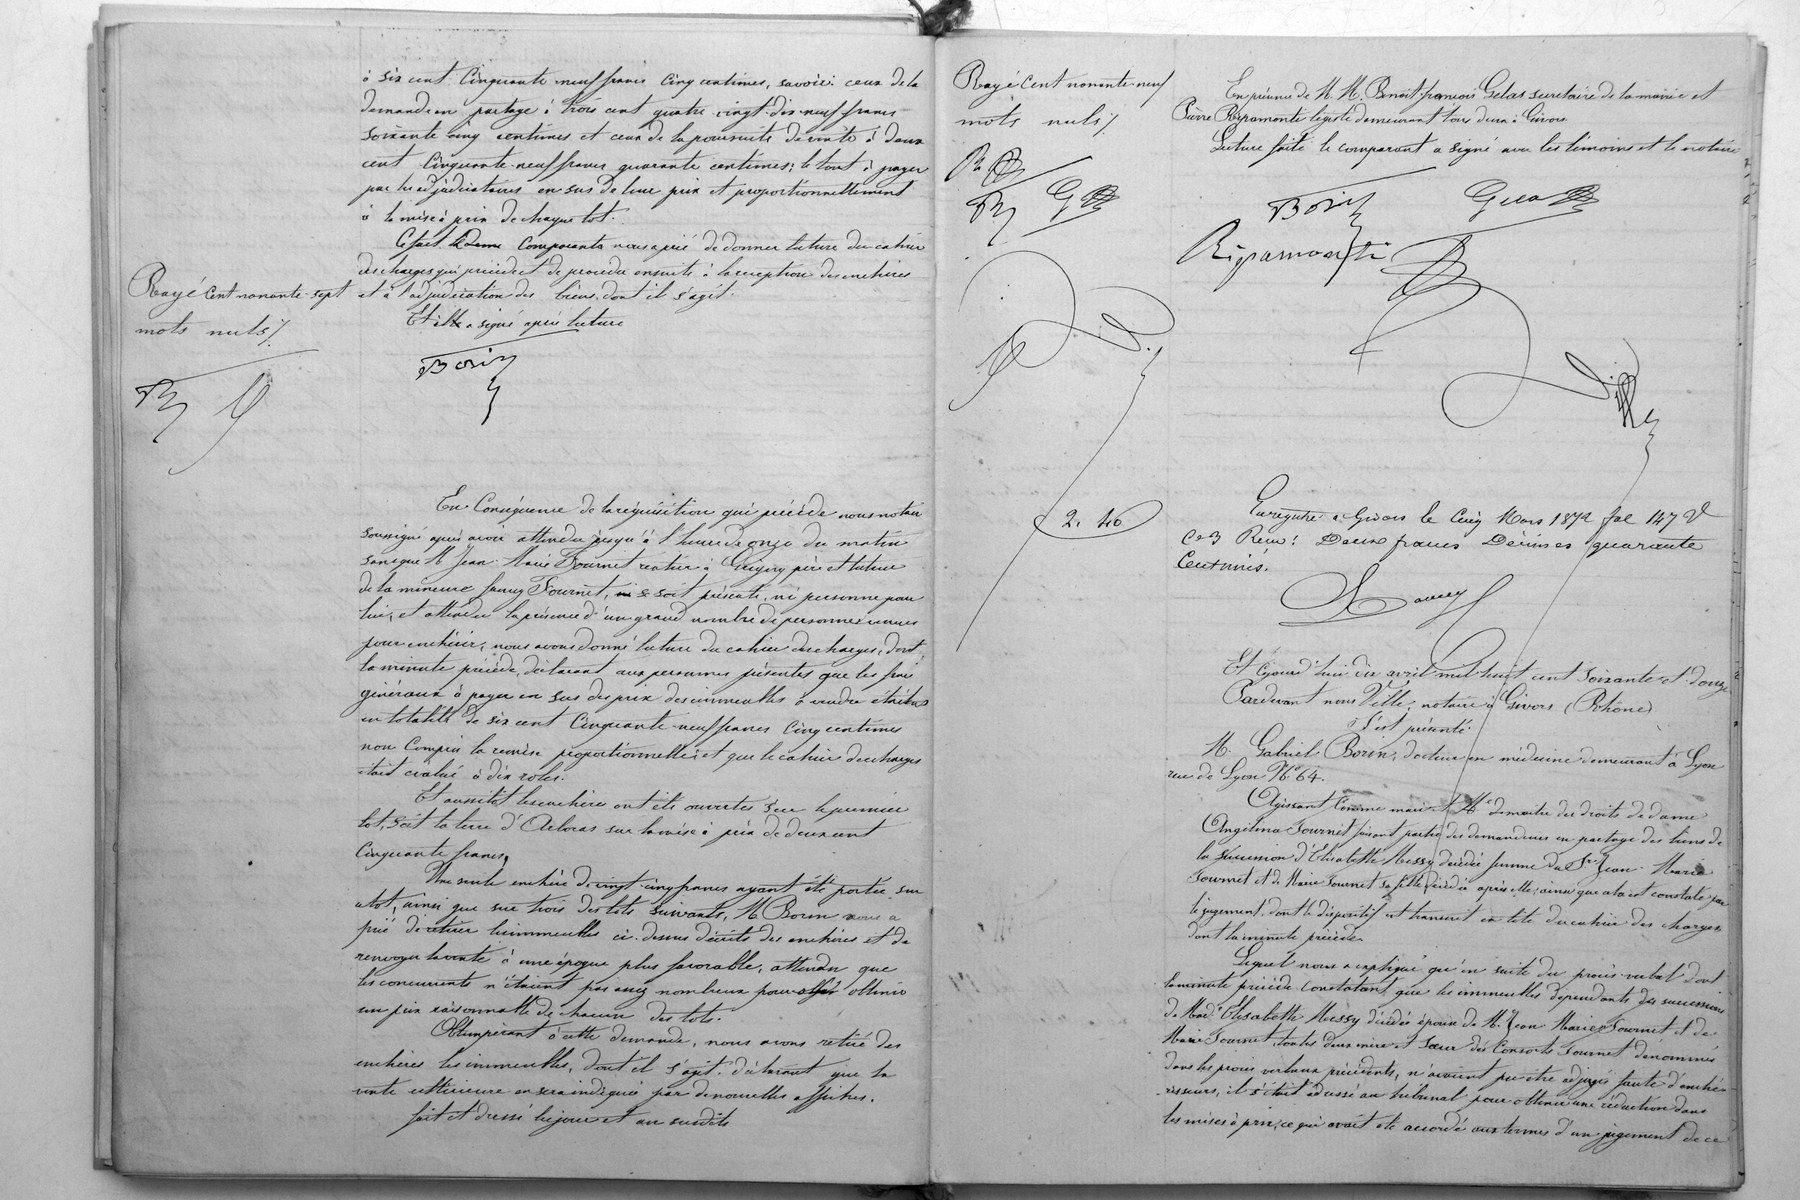 à six cent Cinquante neuf francs Cinq centimes, savoir: ceux de la
demande en partage à trois cent quatre vingt-dix-neuf francs
soixante cinq centimes et ceux de la poursuite de vente à deux
cent Cinquante-neuf francs quarante centimes; le tout à payer
par les adjudicataires en sus de leur prix et proportionnellement
à la mise à prix de chaque lot.
Ce fait le Comparants nous a prié de donner lecture du cahier
des charges qui précède et de procéder ensuite à la réception des enchères
et à l'adjudication des biens dont il s'agit.
Et il a signé après lecture
Borin
Rayé Cent nonante-sept
mots nuls
En Conséquence de la réquisition qui précède nous notaire
soussigné après avoir attendu jusqu'à l'heure de onze du matin
sans que M Jean-Marie Fournet rentier à Grigny père et tuteur
de la mineure Fanny Fournet, se soit présenté, ni personne pour
lui, et attendu la présence d'un grand nombre de personnes venues
pour enchérir, nous avons donné lecture du cahier des charges, dont
la minute précède, déclarant aux personnes présentes que les frais
généraux à payer en sus des prix des immeubles à vendre étaient
en totalité de six cent Cinquante-neuf francs Cinq centimes
non Compris la remise proportionnelle; et que le cahier des charges
était évalué à dix roles.
Et aussitôt les enchère ont été ouvertes sur le premier
lot, soit la terre d'Arboras sur la mise à prix de deux cent
Cinquante francs,
Une seule enchère de vingt-cinq francs ayant été portée sur
ce lot, ainsi que sur trois des lots suivants, M. Borin nous a
prié de retirer les immeubles ci-dessus décrits des enchères et de
renvoyer la vente à une époque plus favorable, attendu que
les concurrents n'étaient pas assez nombreux pour obtenir
un prix raisonnable de chacun des lots.
Obtempérant à cette demande, nous avons retiré des
enchères les immeubles, dont il s'agit, déclarant que la
vente ultérieure en sera indiquée par de nouvelles affiches.
Fait et dressé les jour et an susdits
Rayé Cent nonante-neuf
mots nuls
En présence de M. M. Benoit-françois Gelas secretaire de la mairie et
Pierre Ripamonte légiste demeurant tous deux à Givors
Lecture faite le comparant a signé avec les témoins et le notaire
Borin
Gelas
Ripamonti
2. 40
Enregistré à Givors le Cinq Mars 1872 fol 147 V
C 3 Reçu: Deux francs Décimes quarante
Centimes.
Et cejourd'hui dix avril mil huit cent soixante et douze
Pardevant nous Ville, notaire à Givors (Rhône)
S'est présenté
M. Gabriel Borin, docteur en médecine demeurant à Lyon
rue de Lyon No 64.
Agissant Comme mari et Me de maître des droits de dame
Angélina Fournet faisant partie des demandeurs en partage des biens de
la succession d'Elisabeth Messy décédée femme de Sr Jean-Marie
Fournet et de Marie Fournet sa fille décédée après elle; ainsi que cela est constaté par
le jugement dont le dispositif est transcrit en tête du cahier des charges
dont la minute précède
Lequel nous a expliqué qu'en suite du procès-verbal dont
la minute précède Constatant que les immeubles dépendants des successions
de Made Elisabeth Messy décédée épouse de M. Jean Marie Fournet et de
Marie Fournet, toutes deux mère et sœur des Consorts Fournet dénommés
dans les procès verbaux précédents, n'avaient pu être adjugés faute d'enché-
risseurs, il s'était adressé au tribunal pour obtenir une réduction dans
les mises à prix, ce qui avait été accordé aux termes d'un jugement de ce